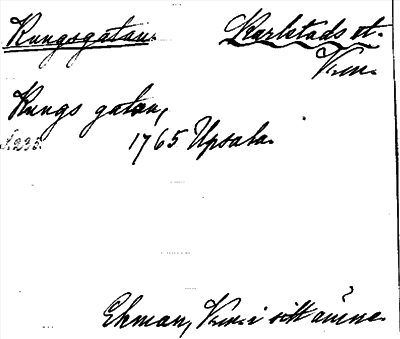 Kungsgatan. Karlstads st.
Vrml.
Kungs gatan,
S.235. 1765 Upsala.
Ekman, Vrml. i sitt ämne.